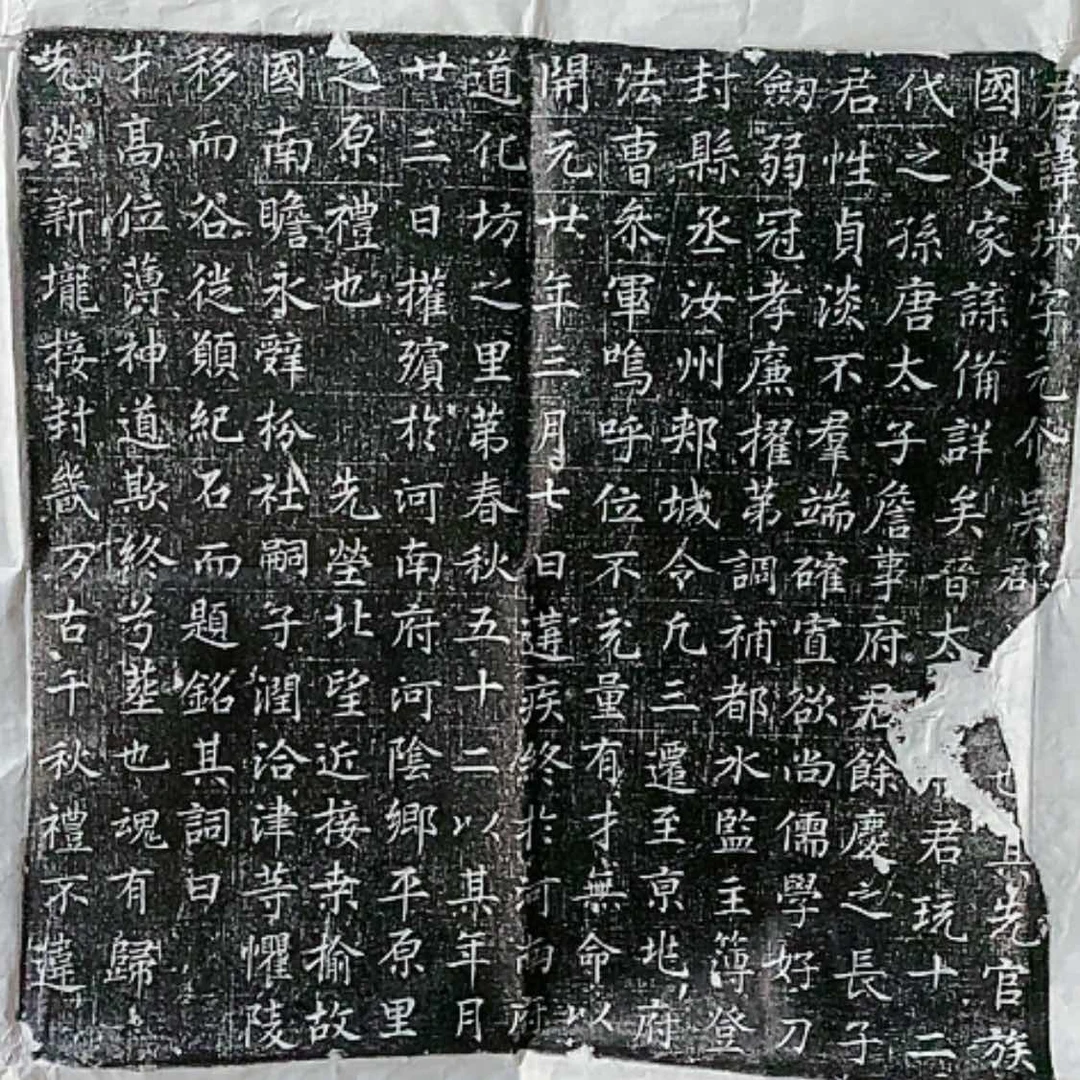 君諱字元吳郡也其先官族
國史家諜備詳矣晉太君玩十二
代之孫唐太子詹事府君餘慶之長子
君性貞淡不羣端確欲尚儒學好刀
劒弱冠孝廉擢第調補都水監主簿登
封縣丞汝州郟城令凡三遷至京兆府
法曹叅軍嗚呼位不充量有才無命以
開元廿年三月七日遘疾終於河南府
道化坊之里第春秋五十二以其年月
廿三日權殯於河南府河陰鄉平原里
之原禮也　先塋北望近接桒榆故
國南瞻永辭枌社嗣子潤洽津等懼陵
移而谷徙願紀石而題銘其詞曰
才高位薄神道欺終兮塟也魂有歸
先塋新壠接封幾万古千秋禮不違